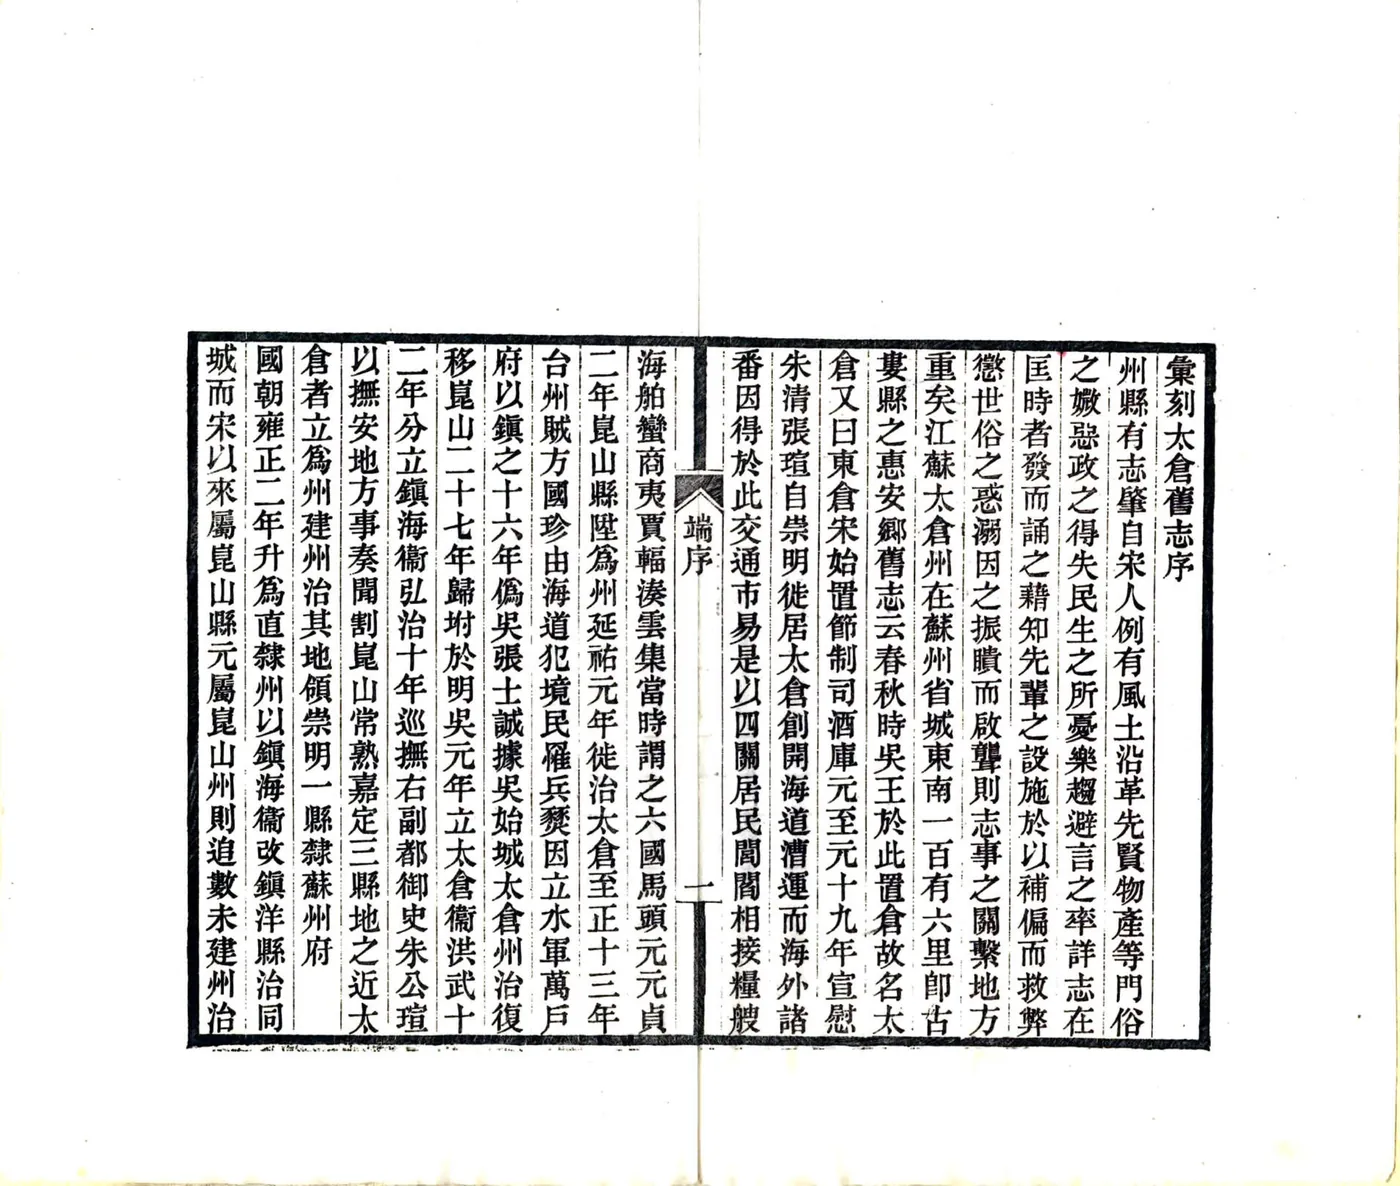 彙刻太倉舊志序
州縣有志肇自宋人例有風土沿革先賢物產等門俗
之媺惡政之得失民生之所憂樂趨避言之率詳志在
匡時者發而誦之藉知先輩之設施於以補偏而救弊
懲世俗之惑溺因之振聵而啟聾則志事之關繫地方
重矣江蘇太倉州在蘇州省城東南一百有六里卽古
婁縣之惠安鄉舊志云春秋時吳王於此置倉故名太
倉又曰東倉宋始置節制司酒庫元至元十九年宣慰
朱清張瑄自崇明徙居太倉創開海道漕運而海外諸
番因得於此交通市易是以四關居民閭閻相接糧艘
端序
一
海舶蠻商夷賈輻湊雲集當時謂之六國馬頭元元貞
二年崑山縣陞爲州延祐元年徙治太倉至正十三年
台州賊方國珍由海道犯境民罹兵燹因立水軍萬戶
府以鎮之十六年僞吳張士誠據吳始城太倉州治復
移崑山二十七年歸坿於明吳元年立太倉衞洪武十
二年分立鎮海衞弘治十年巡撫右副都御史朱公瑄
以撫安地方事奏聞割崑山常熟嘉定三縣地之近太
倉者立爲州建州治其地領崇明一縣隸蘇州府
國朝雍正二年升爲直隸州以鎮海衞改鎮洋縣治同
城而宋以來屬崑山縣元屬崑山州則追數未建州治